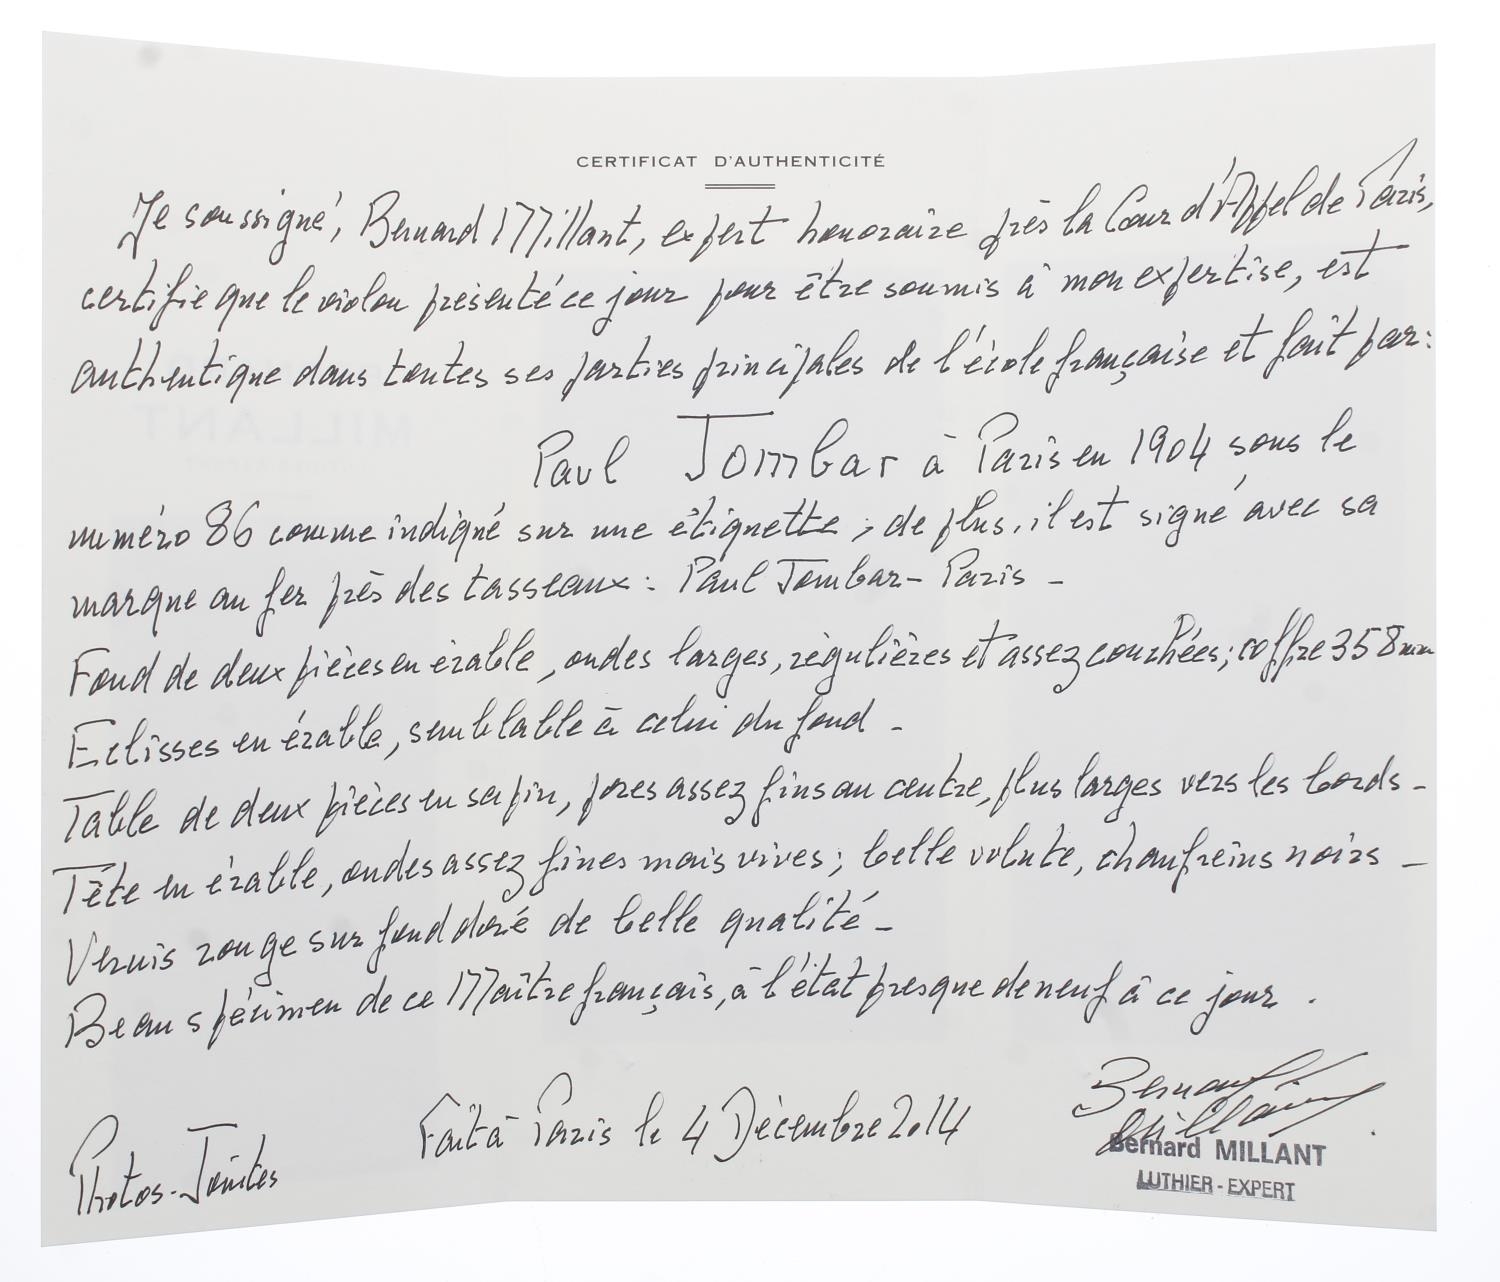 CERTIFICAT D'AUTHENTICITÉ
Je soussigné, Bernard Millant, expert honoraire près la Cour d'Appel de Paris,
certifie que le violon présenté ce jour pour être soumis à mon expertise, est
authentique dans toutes ses parties principales de l'école française et fait par:
Paul Jombar à Paris en 1904 sous le
numéro 86 comme indiqué sur une étiquette; de plus, il est signé avec sa
marque au fer près des tasseaux: Paul Jombar - Paris -
Fond de deux pièces en érable, ondes larges, régulières et assez couchées; coffre 358 mm
Eclisses en érable, semblable à celui du fond -
Table de deux pièces en sapin, pores assez fins au centre, plus larges vers les bords -
Tête en érable, ondes assez fines mais vives; belle volute, chanfreins noirs -
Vernis rouge sur fond doré de belle qualité -
Beau spécimen de ce Maître français, à l'état presque de neuf à ce jour.
Fait à Paris le 4 Décembre 2014
Photos-Jointes
Bernard Millant
Bernard MILLANT
LUTHIER - EXPERT